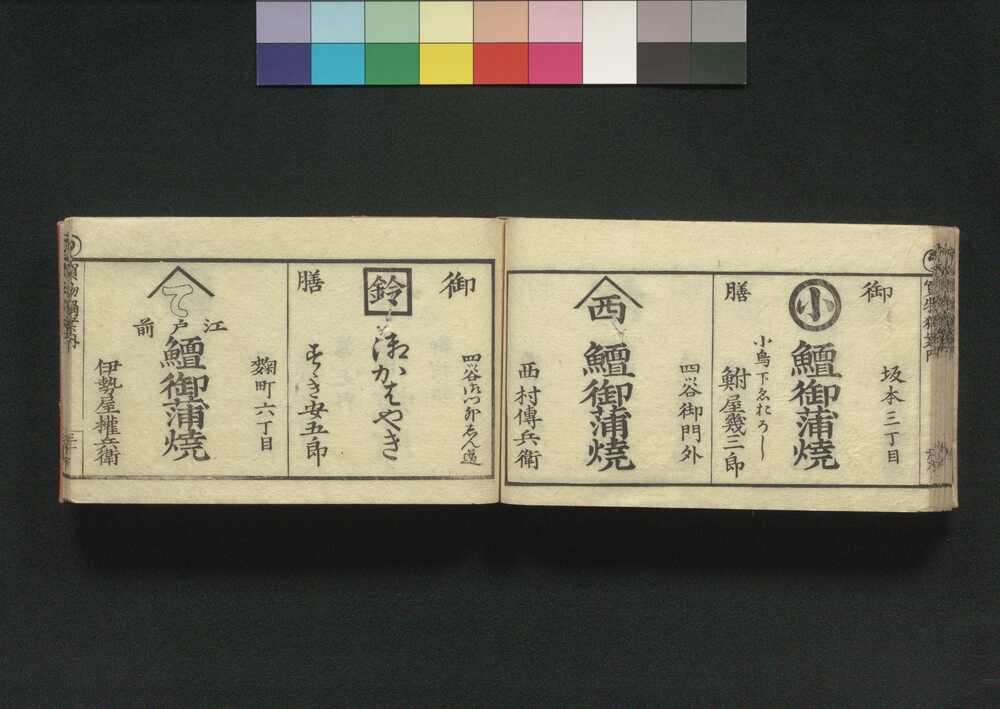 坂本三丁目
御
小
鱣御蒲焼
膳
小鳥下ゑおろし
鮒屋幾三郎
四谷御門外
西
鱣御蒲焼
西村傳兵衛
御
鈴
御かばやき
膳
すゞき安五郎
麹町六丁目
て
江戸前
鱣御蒲焼
伊勢屋權兵衛